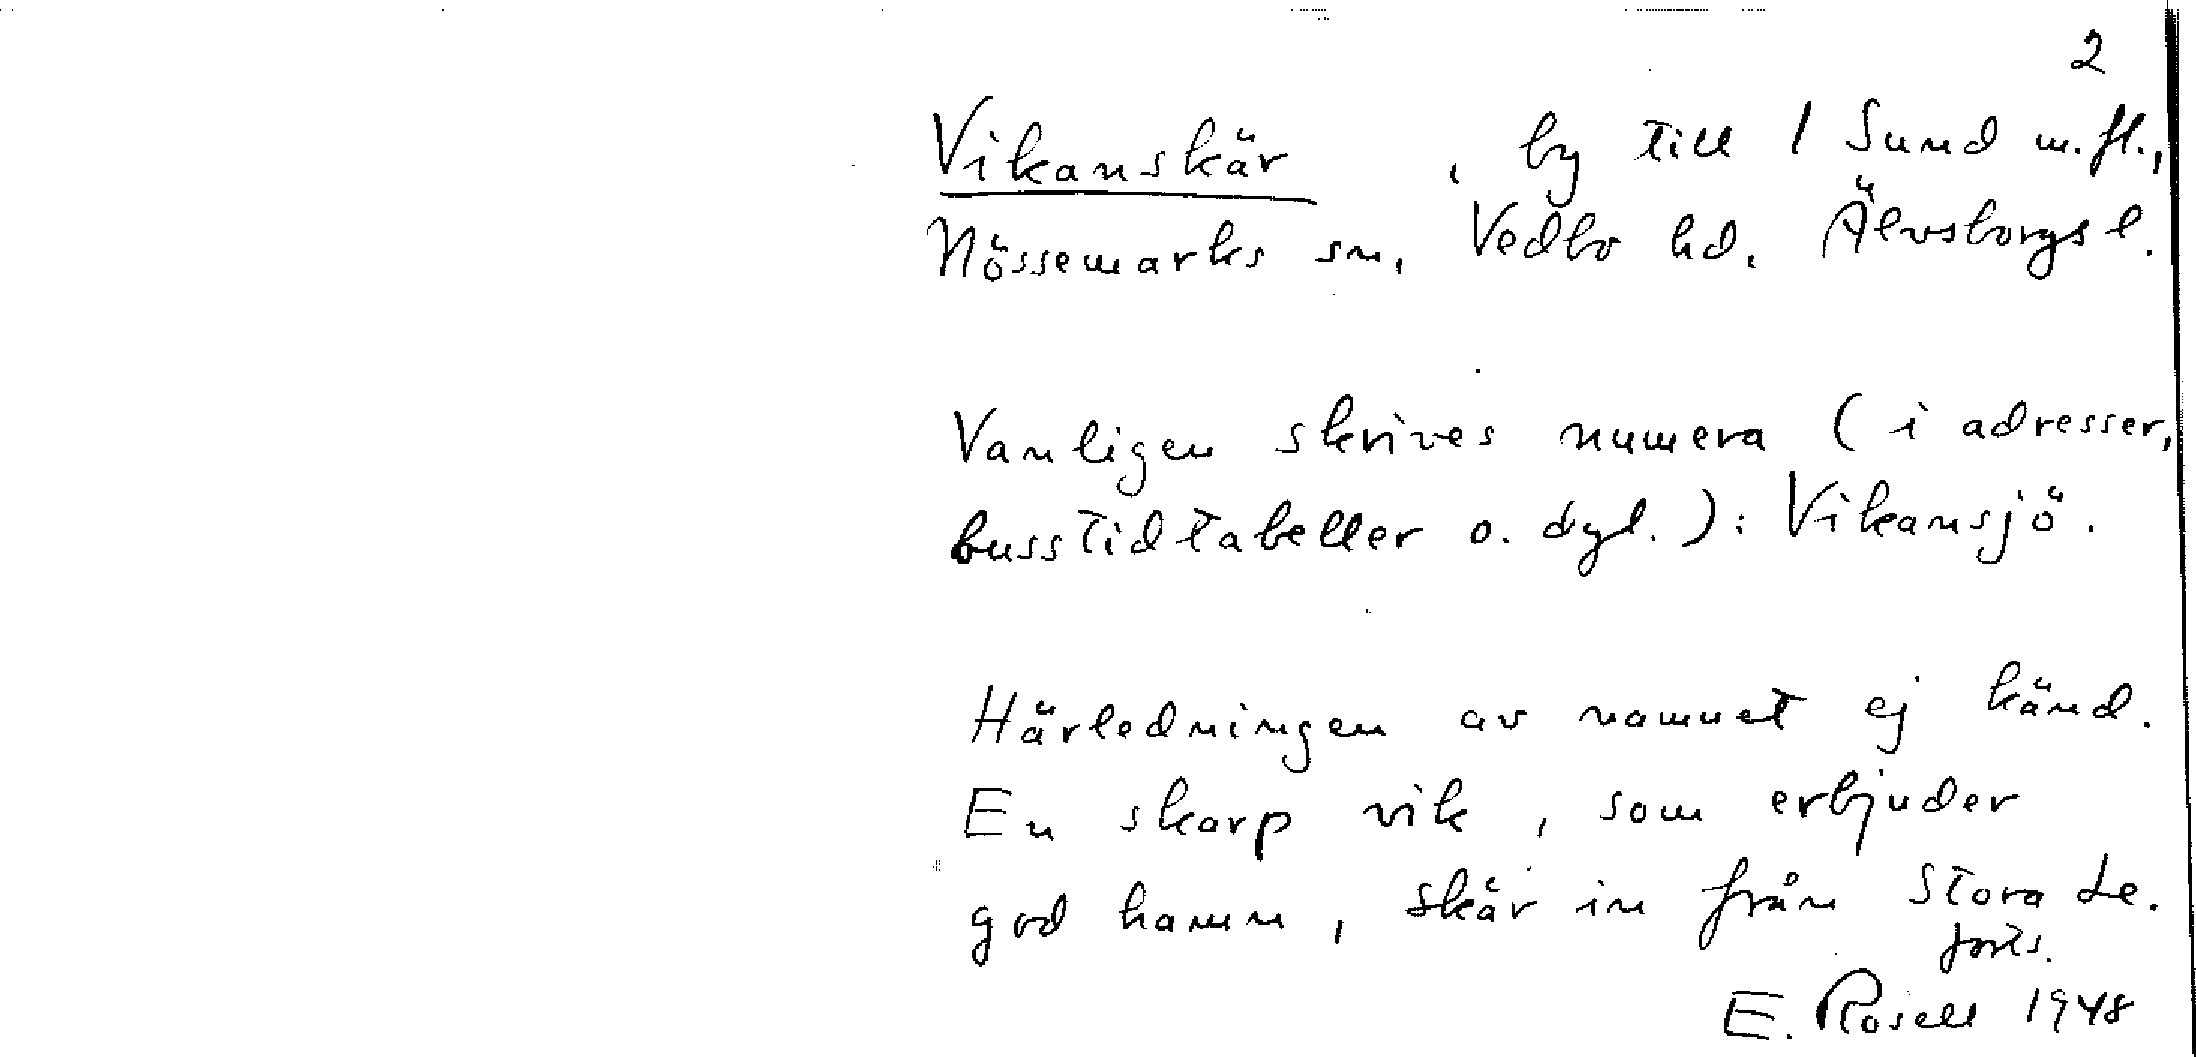 2
Vikanskär, by till 1 Sund m.fl.,
Nössemarks sn, Vedbo hd. Älvsborgs l.
Vanligen skrives numera (i adresser,
busstidtabeller o. dyl.): Vikansjö.
Härledningen av namnet ej känd.
En skarp vik, som erbjuder
god hamn, skär in från Stora Le.
forts.
E. Rosell 1948